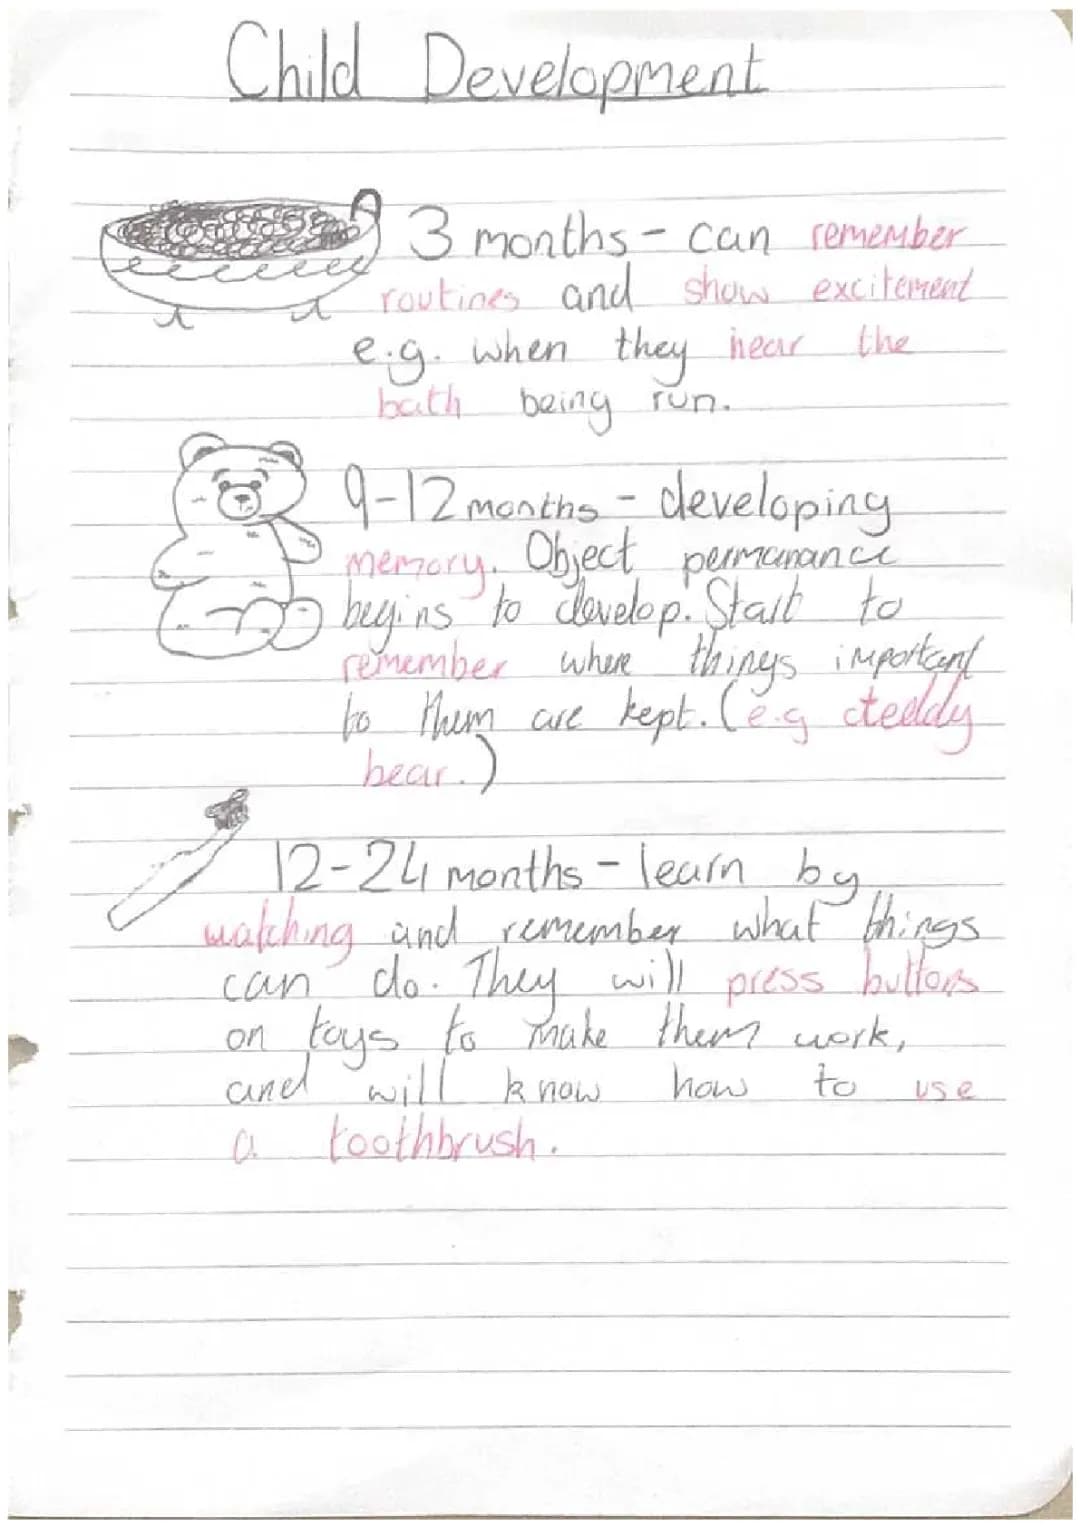 Child Development
3 months - can remember
routines and show excitement
e.g. when they hear the
bath being run.
9-12 months - developing
memory. Object permanance
begins to develop. Start to
remember where things important
to them are kept. (e.g a teddy
bear.)
12-24 months - learn by
watching and remember what things
can do. They will press buttons
on toys to make them work,
and will know how to use
a toothbrush.